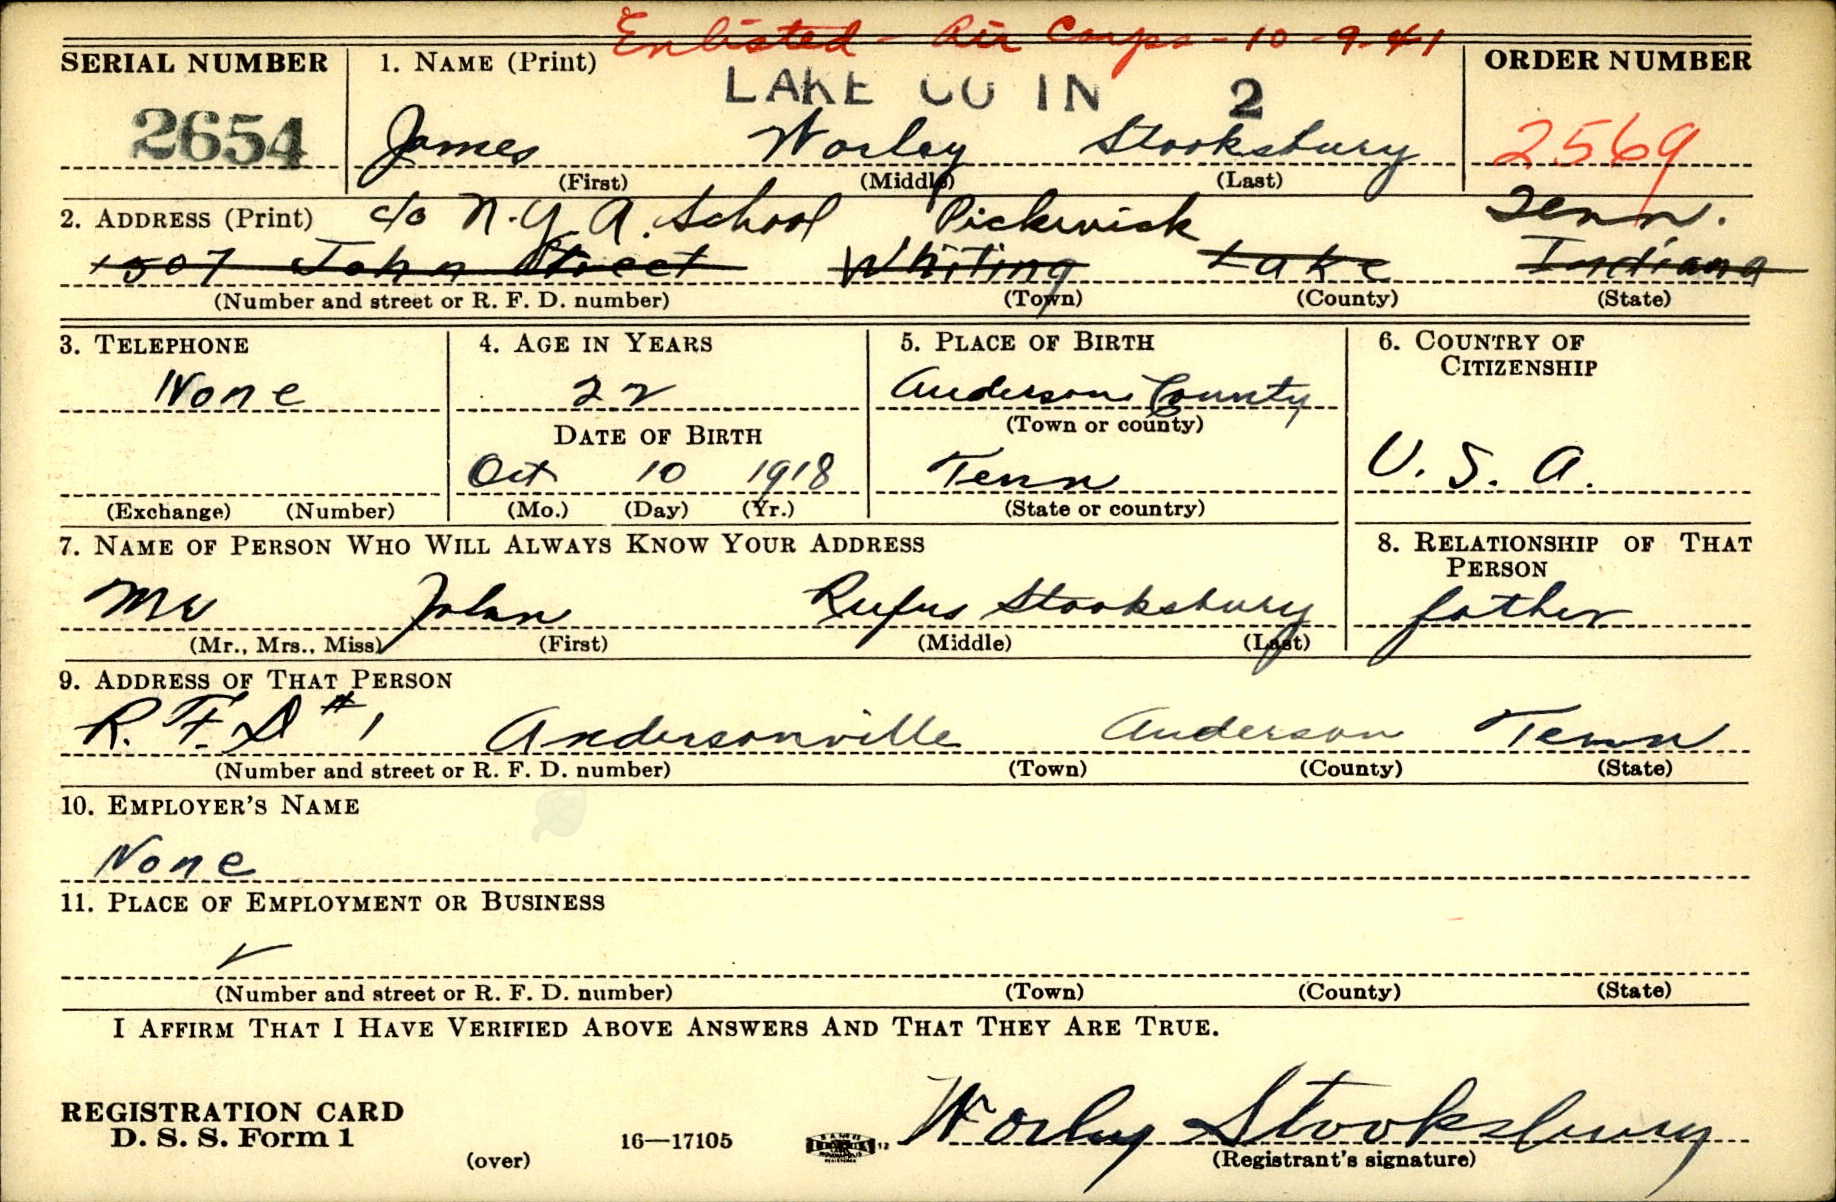 Enlisted - Air Corps - 10-9-41
SERIAL NUMBER 1. NAME (Print) ORDER NUMBER
LAKE CO IN 2
2654 James Worley Stooksbury 2569
(First) (Middle) (Last)
2. ADDRESS (Print) c/o N.Y.A. School Pickwick Tenn.
1507 John Street Whiting Lake Indiana
(Number and street or R. F. D. number) (Town) (County) (State)
3. TELEPHONE 4. AGE IN YEARS 5. PLACE OF BIRTH 6. COUNTRY OF CITIZENSHIP
None 22 Anderson County
(Town or county)
DATE OF BIRTH
Oct 10 1918 Tenn U. S. A.
(Exchange) (Number) (Mo.) (Day) (Yr.) (State or country)
7. NAME OF PERSON WHO WILL ALWAYS KNOW YOUR ADDRESS 8. RELATIONSHIP OF THAT PERSON
Mr John Rufus Stooksbury father
(Mr., Mrs., Miss) (First) (Middle) (Last)
9. ADDRESS OF THAT PERSON
R. F. D #1 Andersonville Anderson Tenn
(Number and street or R. F. D. number) (Town) (County) (State)
10. EMPLOYER'S NAME
None
11. PLACE OF EMPLOYMENT OR BUSINESS
(Number and street or R. F. D. number) (Town) (County) (State)
I AFFIRM THAT I HAVE VERIFIED ABOVE ANSWERS AND THAT THEY ARE TRUE.
REGISTRATION CARD
D. S. S. Form 1 16—17105 12 Worley Stooksbury
(over) (Registrant's signature)